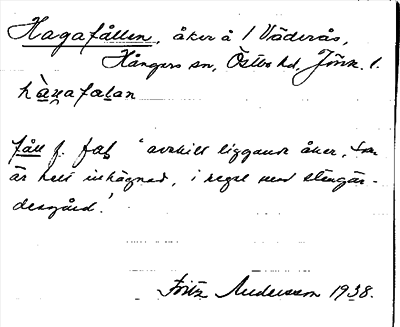 Hagafållen, åker å 1 Väderås,
Hångers sn, Östbo hd, Jönk. l.
hàgafalan
fåll f. fal "avskilt liggande åker, som
är helt inhägnad, i regel med stengär-
desgård."
Fritz Andersson 1938.